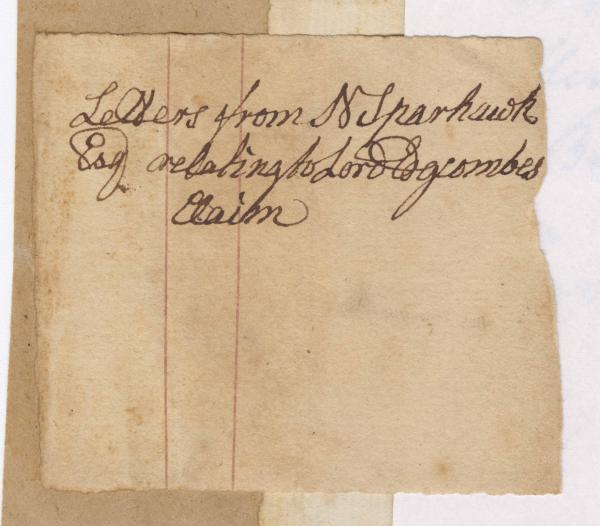 Letters from N Sparhawk
Esq relating to Lord Edgcombes
Claim